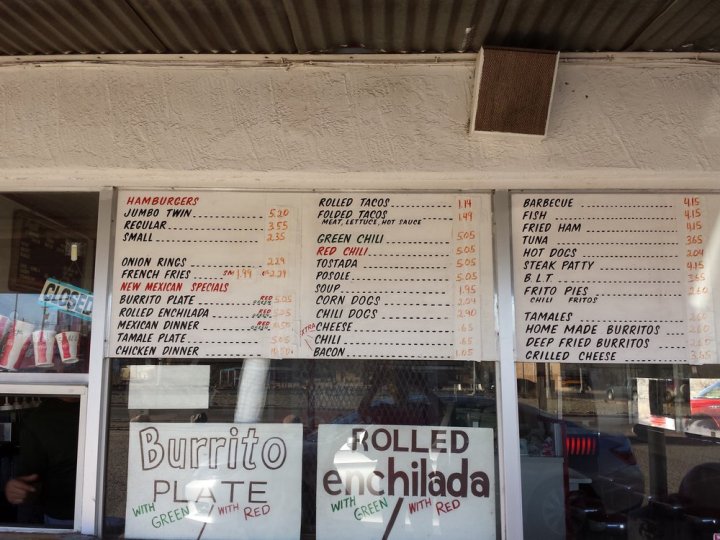 HAMBURGERS
JUMBO TWIN 5.20
REGULAR 3.55
SMALL 2.35
ONION RINGS 2.29
FRENCH FRIES SM 1.99 2.29
NEW MEXICAN SPECIALS
BURRITO PLATE RED 5.05
ROLLED ENCHILADA RED 5.25
MEXICAN DINNER RED
TAMALE PLATE 5.05
CHICKEN DINNER
ROLLED TACOS 1.14
FOLDED TACOS 1.49
MEAT, LETTUCE, HOT SAUCE
GREEN CHILI 5.05
RED CHILI 5.05
TOSTADA 5.05
POSOLE 5.05
SOUP 1.95
CORN DOGS 2.04
CHILI DOGS 2.90
EXTRA
CHEESE .65
CHILI .65
BACON 1.05
BARBECUE 4.15
FISH 4.15
FRIED HAM 4.15
TUNA 3.65
HOT DOGS 2.04
STEAK PATTY 4.15
B.L.T. 3.65
FRITO PIES 2.60
CHILI FRITOS
TAMALES 2.60
HOME MADE BURRITOS 2.60
DEEP FRIED BURRITOS 2.60
GRILLED CHEESE 3.65
CLOSED
Burrito
PLATE
WITH GREEN / WITH RED
ROLLED
enchilada
WITH GREEN / WITH RED